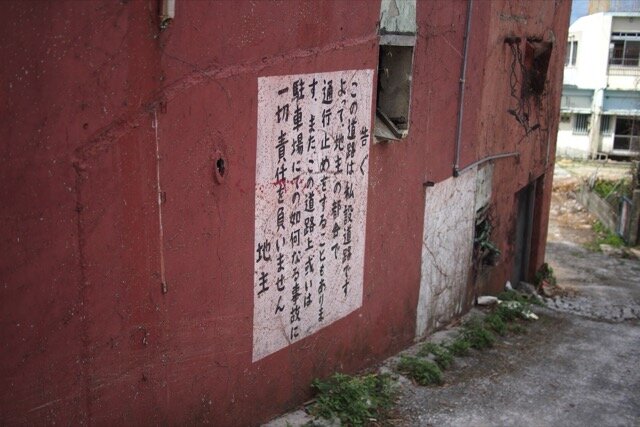 告ぐ
この道路は私設道路です
よって地主の都合で
通行止めをすることもありま
す。またこの道路上或いは
駐車場にての如何なる事故に
一切責任を負いません
地主